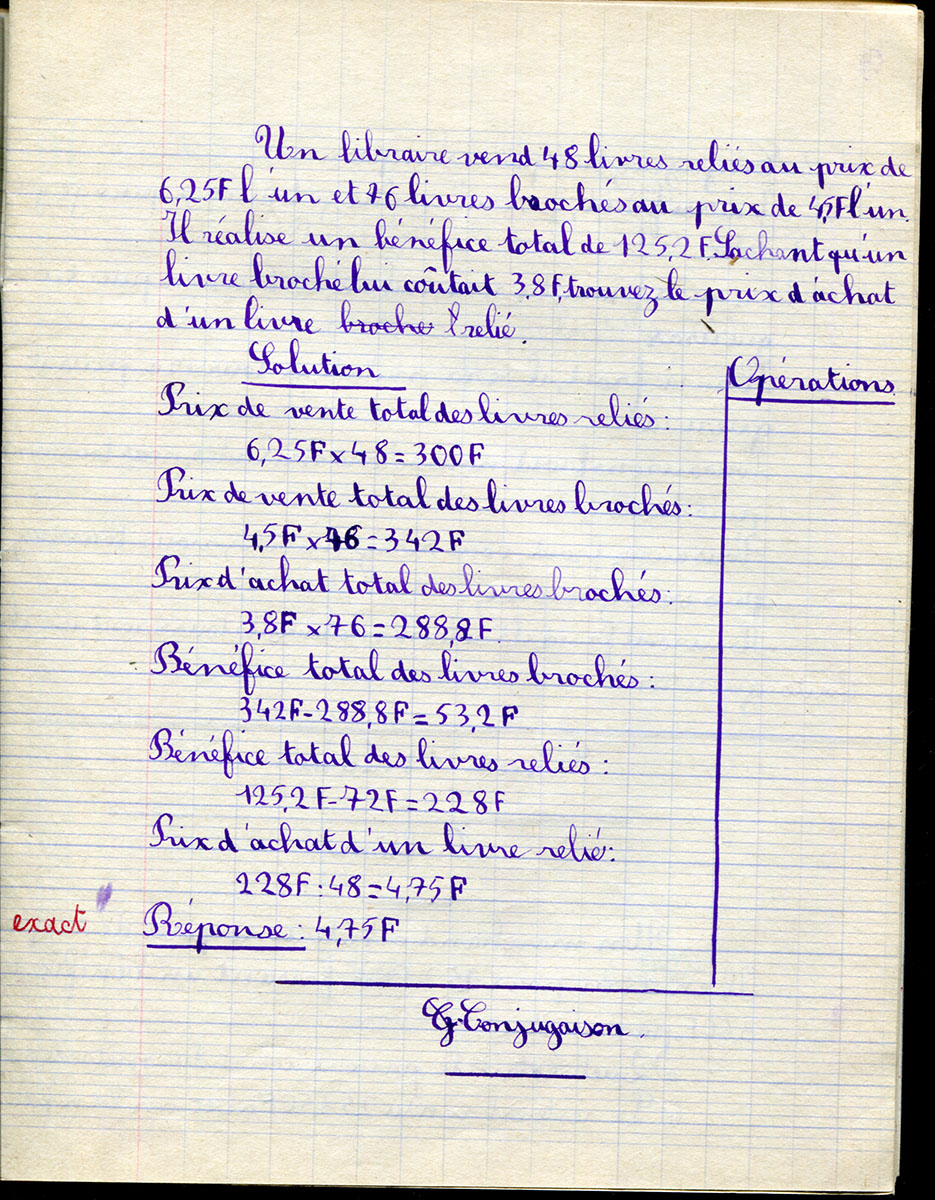 Un libraire vend 48 livres reliés au prix de
6,25F l'un et 76 livres brochés au prix de 4,5F l'un.
Il réalise un bénéfice total de 125,2F. Sachant qu'un
livre broché lui coûtait 3,8F, trouvez le prix d'achat
d'un livre broché relié.
Solution
Opérations
Prix de vente total des livres reliés :
6,25F x 48 = 300F
Prix de vente total des livres brochés :
4,5F x 76 = 342F
Prix d'achat total des livres brochés :
3,8F x 76 = 288,8F
Bénéfice total des livres brochés :
342F - 288,8F = 53,2F
Bénéfice total des livres reliés :
125,2F - 72F = 228F
Prix d'achat d'un livre relié :
228F : 48 = 4,75F
exact
Réponse : 4,75F
Conjugaison.